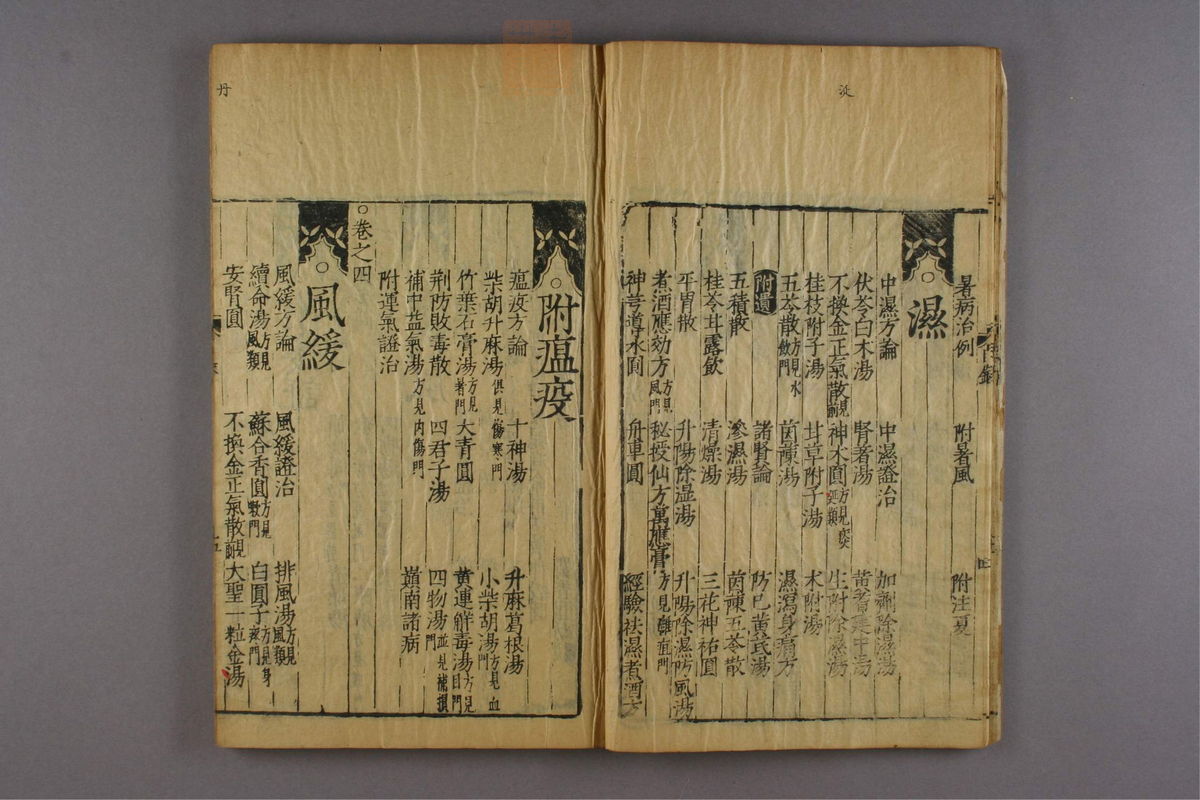 浞
暑病治例 附暑風 附注夏
濕
中濕方論 中濕證治 加劑除濕湯
伏苓白木湯 腎著湯 黃耆建中湯
不換金正氣散見前 神木圓方見突冥類 生附除濕湯
桂枝附子湯 甘草附子湯 木附湯
五苓散方見水飲門 茵蔯湯 濕瀉身痛方
附遺 諸賢論 防已黃芪湯
五積散 滲濕湯 茵蔯五苓散
桂苓甘露飲 清燥湯 三花神祐圓
平胃散 升陽除湿湯 升陽除濕防風湯
煮酒應効方方見風門 秘授仙方萬應膏方見雜疽門
神芎導水圓 舟車圓 經驗袪濕煮酒方
丹
附瘟疫
瘟疫方論 十神湯 升麻葛根湯
柴胡升麻湯俱見傷寒門 小柴胡湯方見血門
竹葉石膏湯方見暑門 大青圓 黃連觧毒湯方見目門
荆防敗毒散 四君子湯 四物湯並見補損門
補中益氣湯方見内傷門 嶺南諸病
附運氣證治
○卷之四
風緩
風緩方論 風緩證治 排風湯方見風類
續命湯方見風類 蘇合香圓方見氣門 白圓子方見身疾門
安腎圓 不換金正氣散見前 大聖一粒金湯